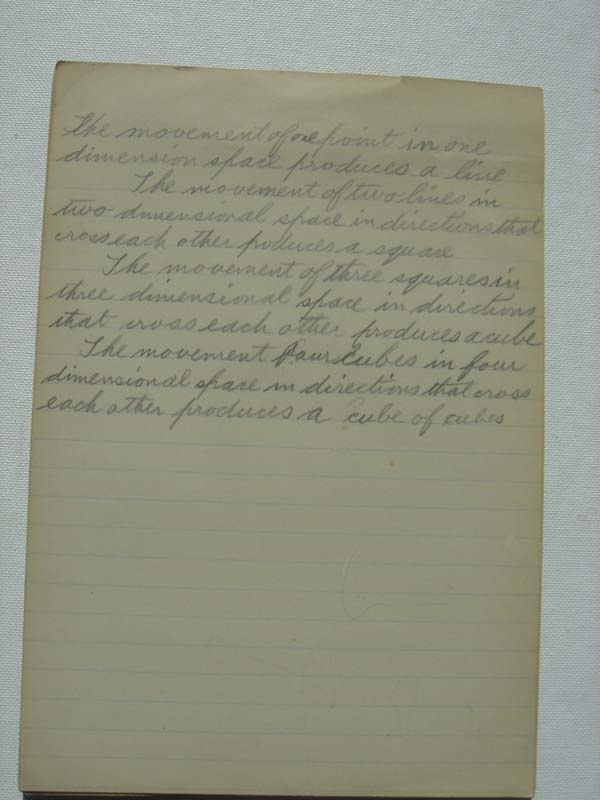 The movement of one point in one
dimension space produces a line
The movement of two lines in
two dmensional space in directions that
cross each other poduces a square
The movement of three squares in
three dimensional space in directions
that cross each other produces a cube
The movement four cubes in four
dimensional space in directions that cross
each other produces a cube of cubes